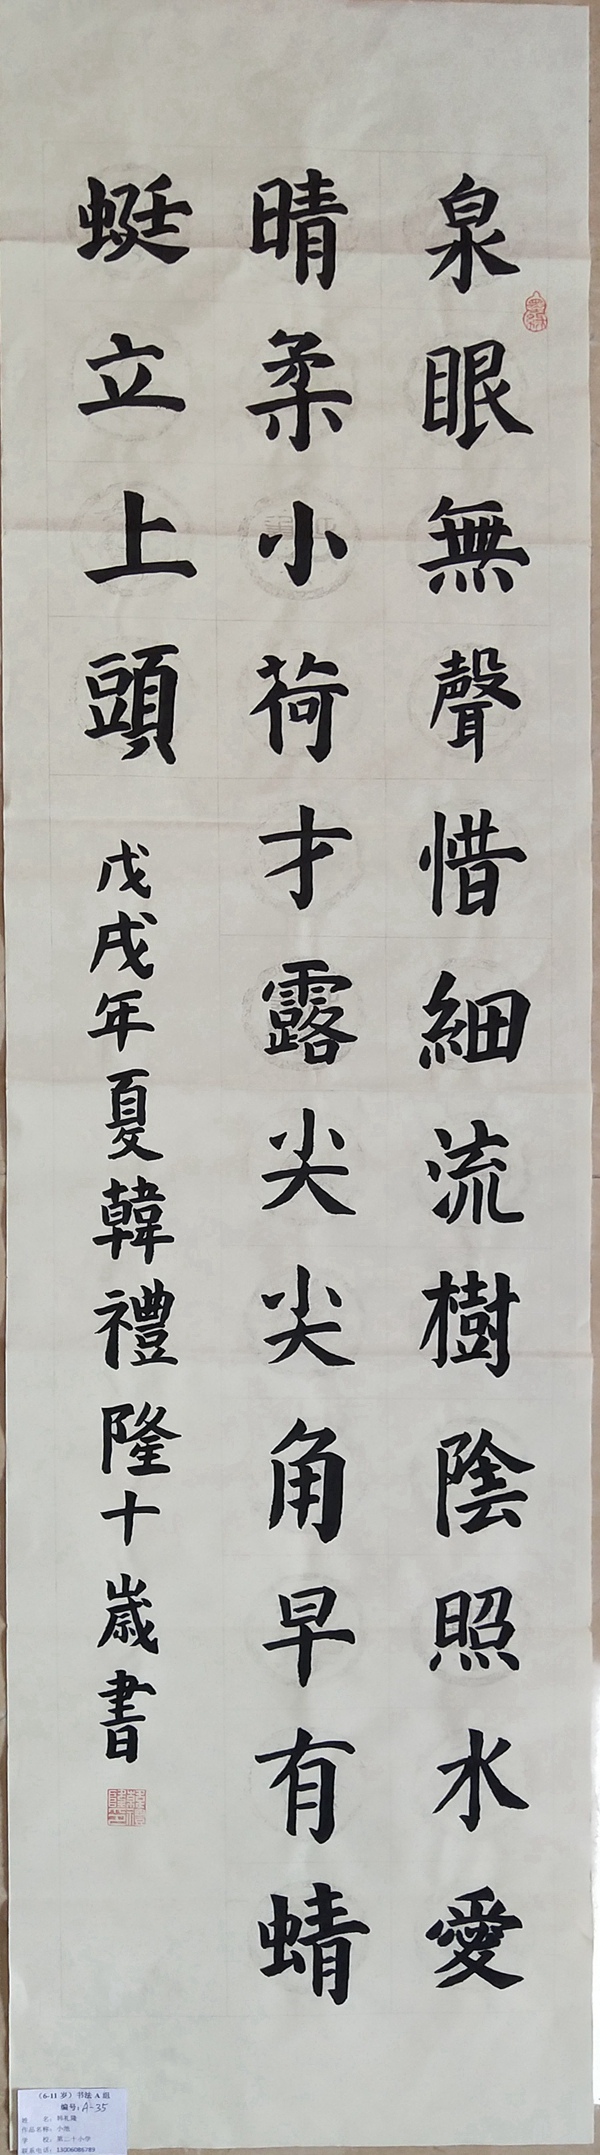 泉眼無聲惜細流樹陰照水愛
晴柔小荷才露尖尖角早有蜻
蜓立上頭
戊戌年夏韓禮隆十歲書
（6-11岁）书法A组
编号：A-35
姓名：韩礼隆
作品名称：小池
学校：第二十小学
联系电话：13006086789